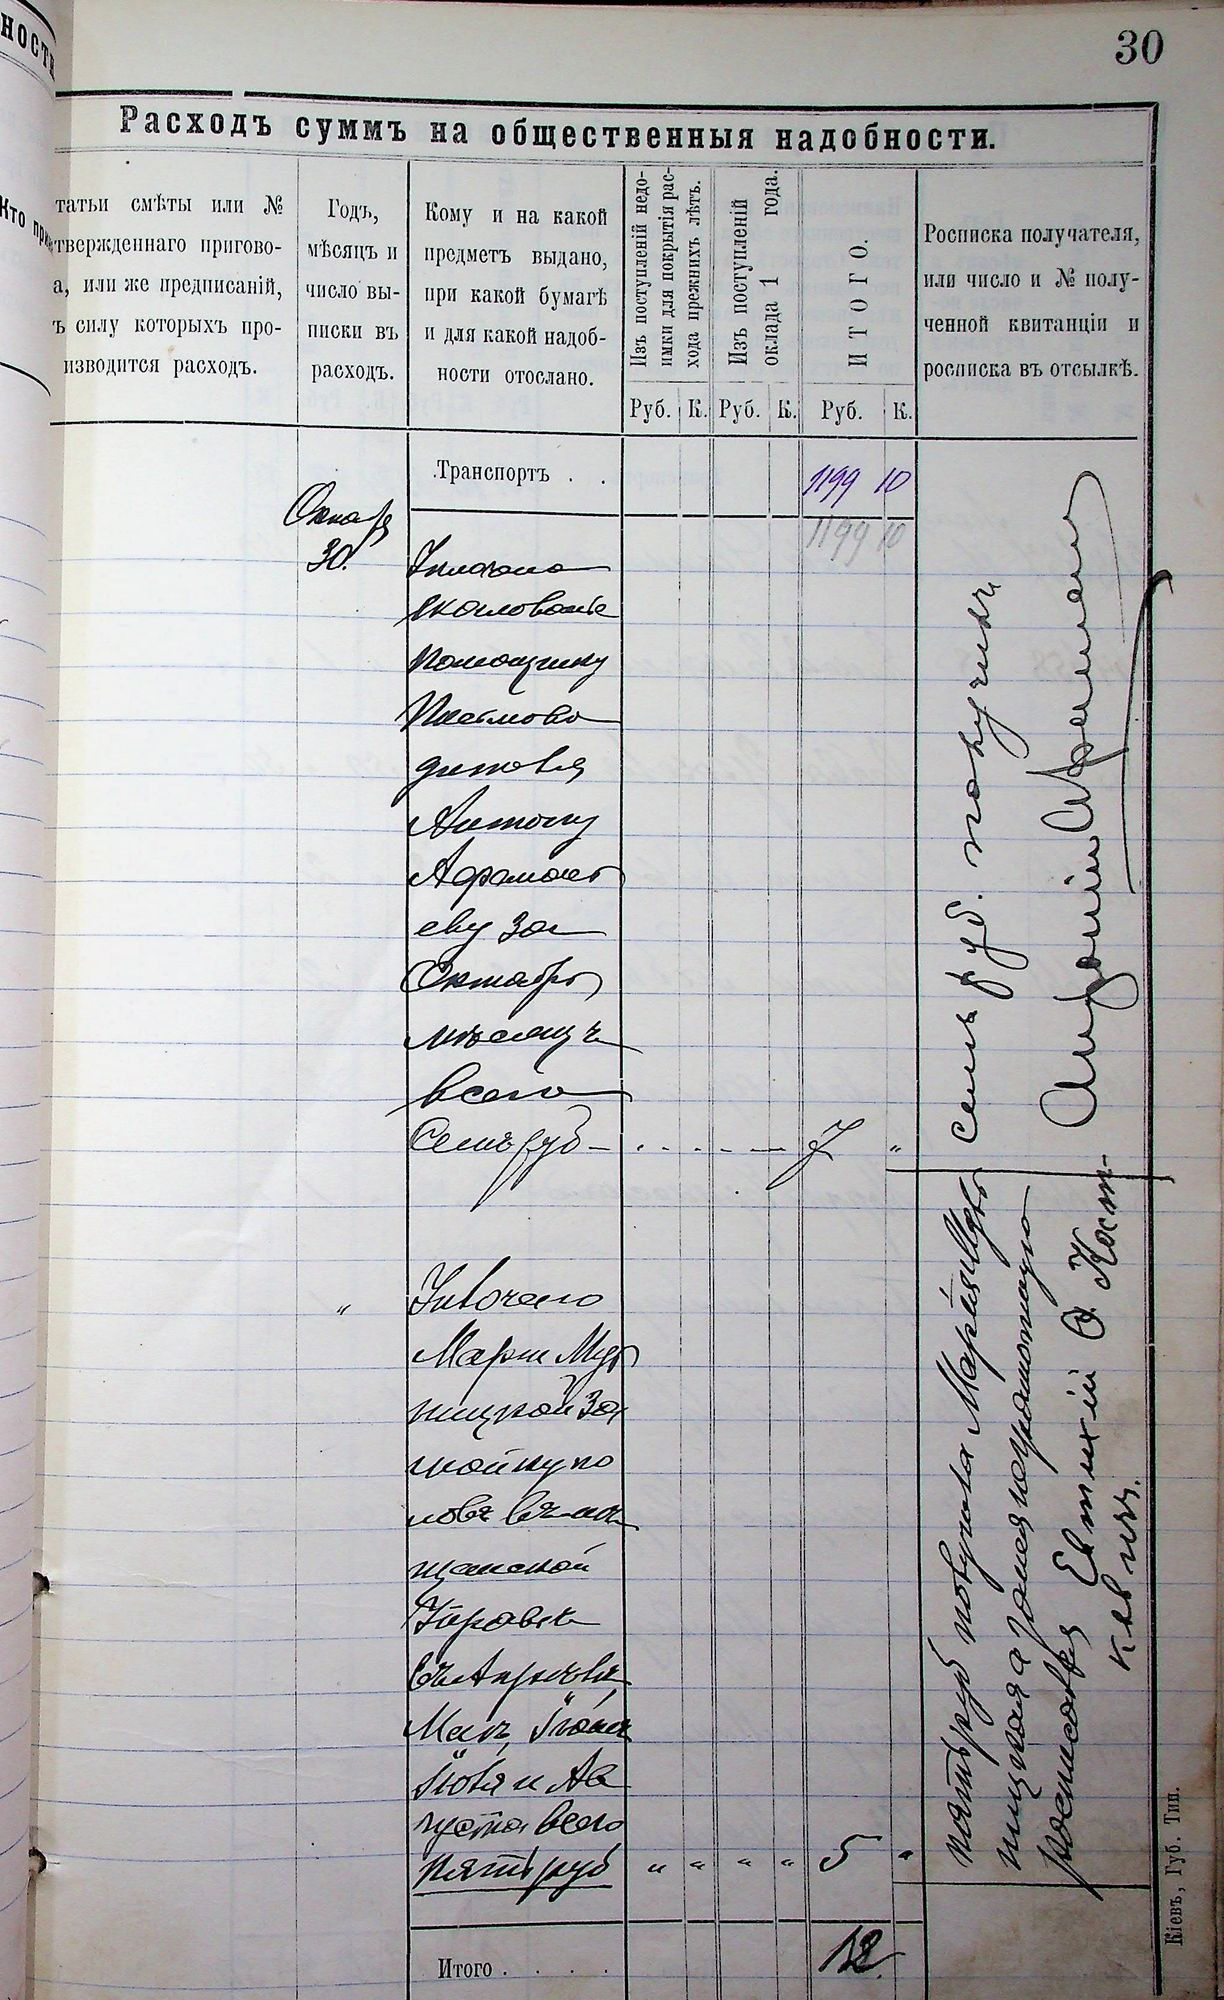 ности
30
Расходъ суммъ на общественныя надобности.
Кто при
татьи смѣты или №
твержденнаго пригово-
а, или же предписаній,
ъ силу которыхъ про-
изводится расходъ.
Годъ,
мѣсяцъ и
число вы-
писки въ
расходъ.
Кому и на какой
предметъ выдано,
при какой бумагѣ
и для какой надоб-
ности отослано.
Изъ поступленій недо-
имки для покрытія рас-
хода прежнихъ лѣтъ.
Изъ поступленій
оклада 1 года.
ИТОГО.
Росписка получателя,
или число и № полу-
ченной квитанціи и
росписка въ отсылкѣ.
Руб. К. Руб. К. Руб. К.
Транспортъ . . 1199 10
1199 10
30.
жалованье
помощнику
Письмово
дителя
Антону
еву за
Октябрь
мѣсяцъ
всего
Семь руб – 7 "
семь руб. получилъ
"
Марии Муд
ницкой за
мойку по
ловъ въ мѣ
щанской
Управѣ
Май, Іюнь
Іюля и Ав
густа всего
пять руб " " " " 5 "
пять руб получила Марія Муд
ницкая а за нея неграмотную
росписался Евтихій Ѳ. Кост-
кевичъ.
Итого . . . . 12.
Кіевъ, Губ. Тип.